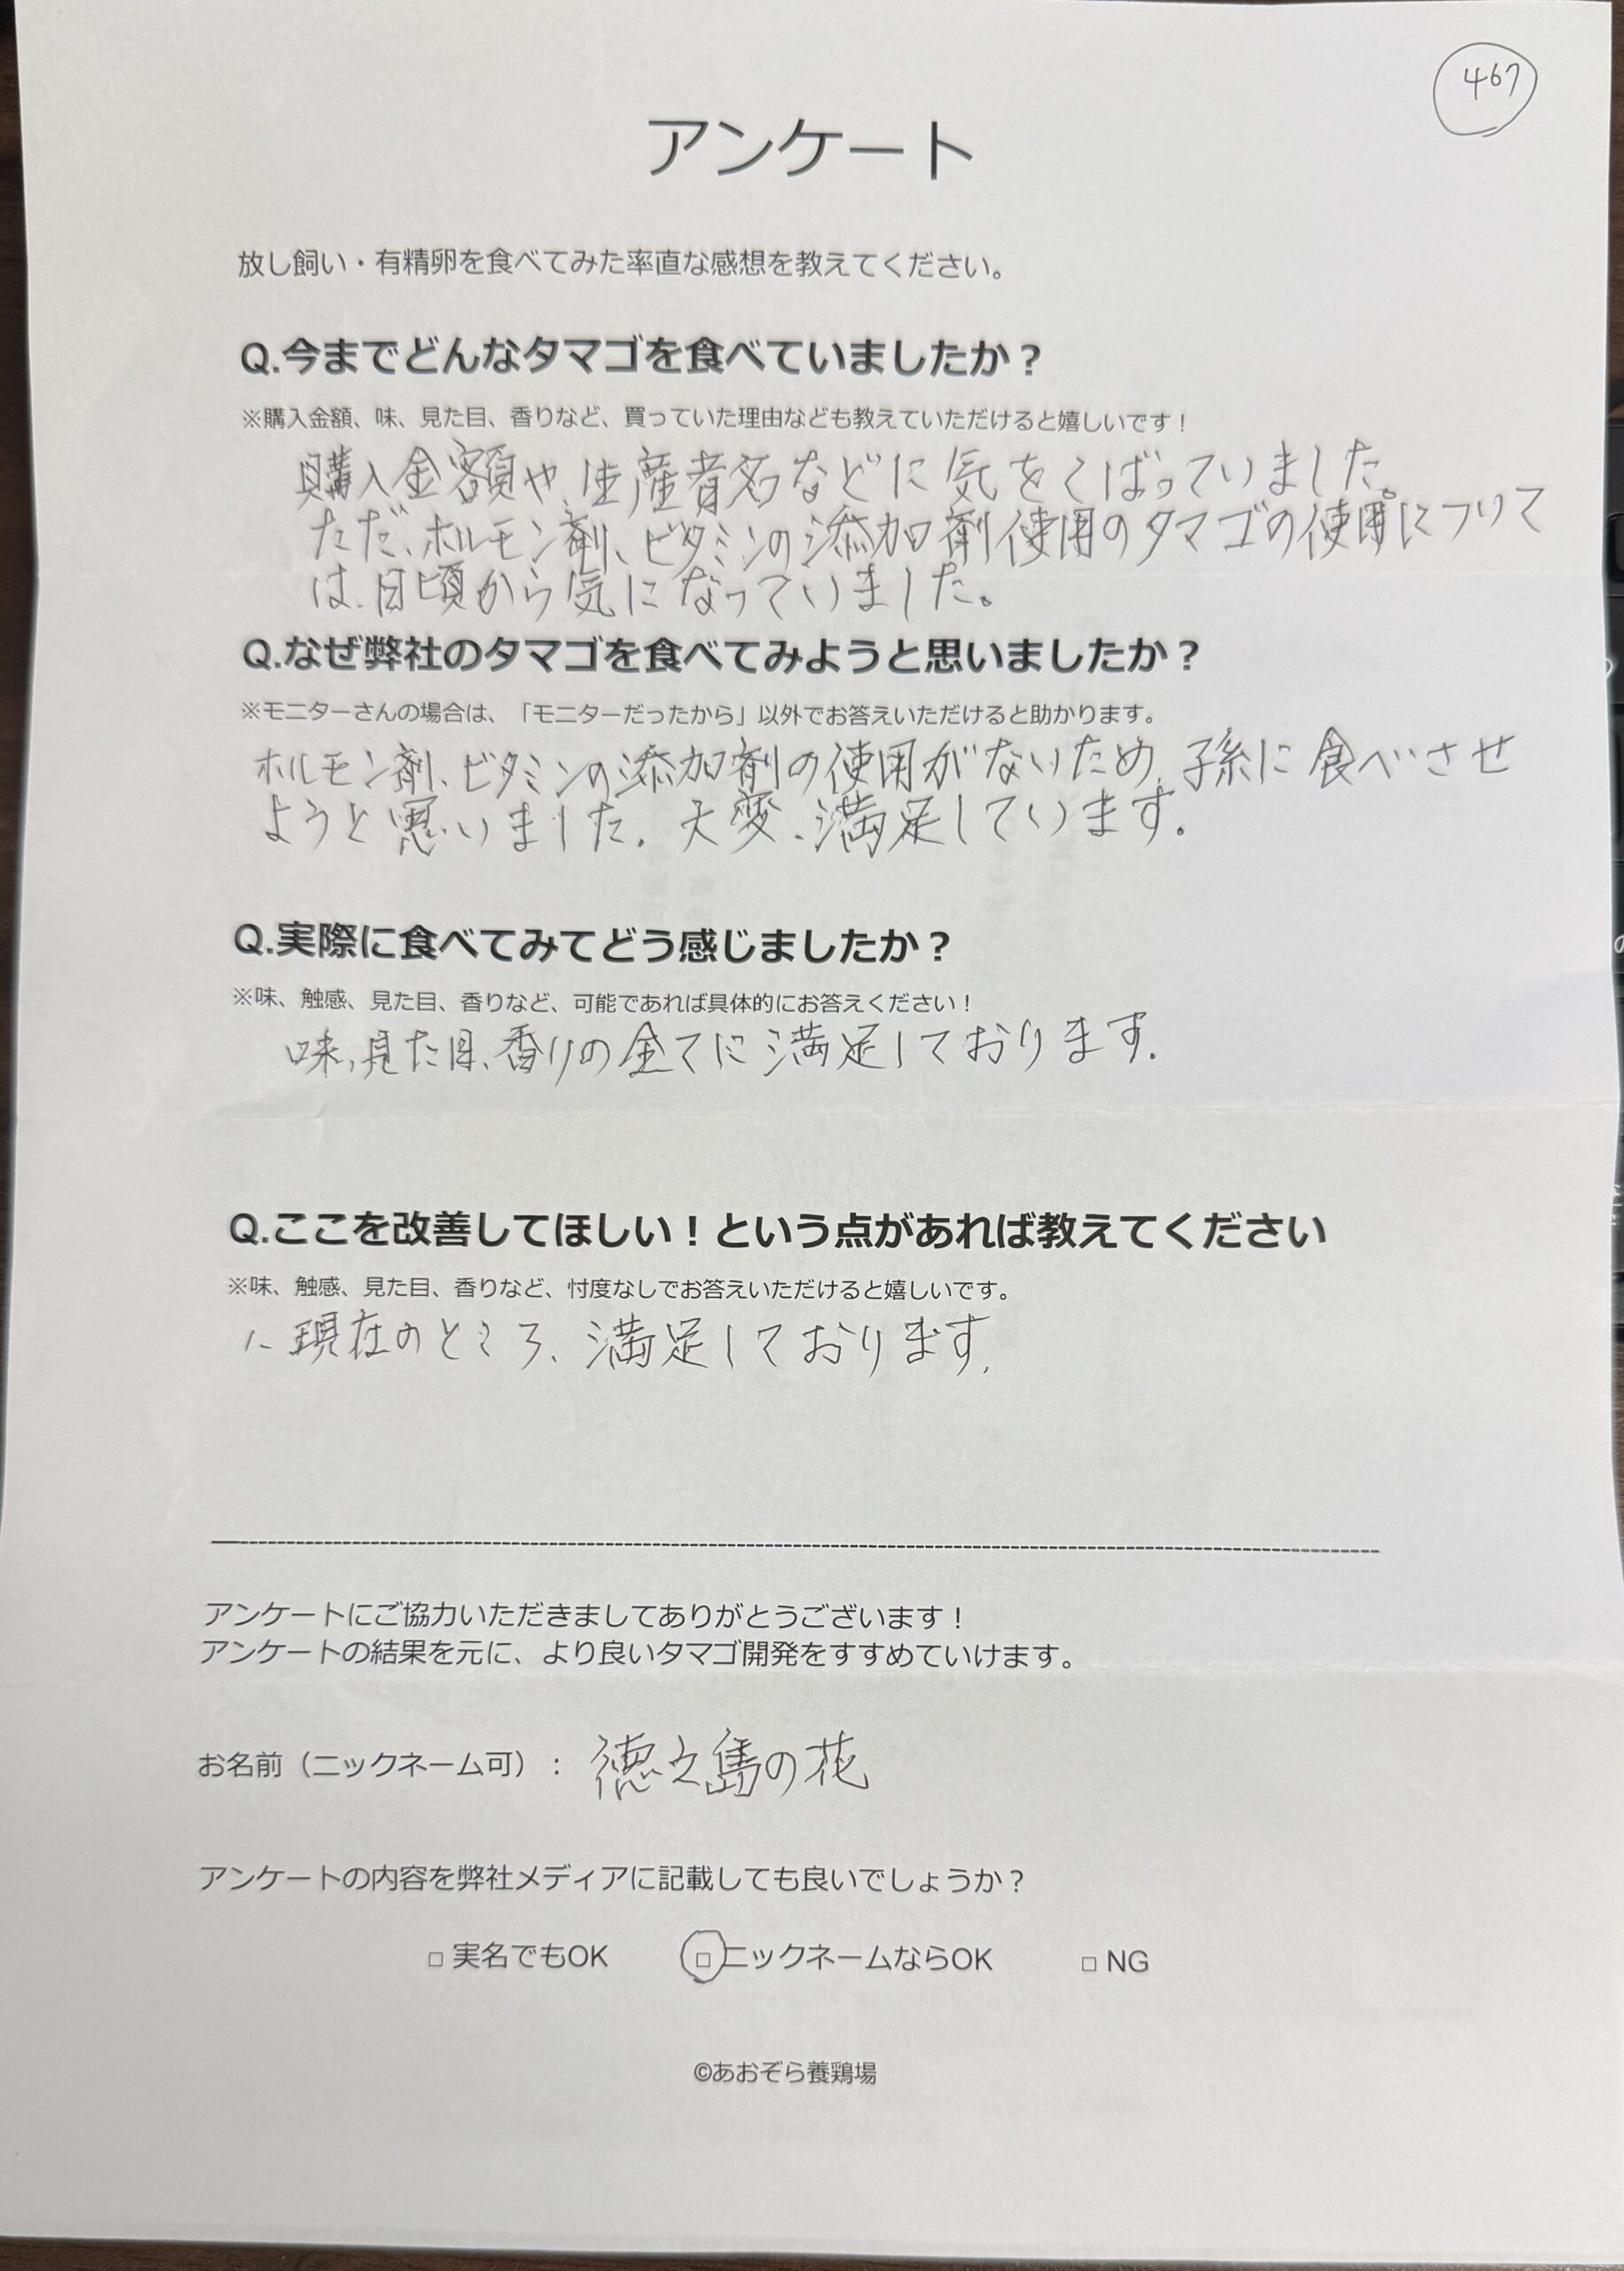 467
アンケート
放し飼い・有精卵を食べてみた率直な感想を教えてください。
Q.今までどんなタマゴを食べていましたか？
※購入金額、味、見た目、香りなど、買っていた理由なども教えていただけると嬉しいです！
購入金額や、生産者名などに気をくばっていました。
ただ、ホルモン剤、ビタミンの添加剤使用のタマゴの使用について
は、日頃から気になっていました。
Q.なぜ弊社のタマゴを食べてみようと思いましたか？
※モニターさんの場合は、「モニターだったから」以外でお答えいただけると助かります。
ホルモン剤、ビタミンの添加剤の使用がないため、孫に食べさせ
ようと思いました。大変、満足しています。
Q.実際に食べてみてどう感じましたか？
※味、触感、見た目、香りなど、可能であれば具体的にお答えください！
味、見た目、香りの全てに満足しております。
Q.ここを改善してほしい！という点があれば教えてください
※味、触感、見た目、香りなど、忖度なしでお答えいただけると嬉しいです。
現在のところ、満足しております。
アンケートにご協力いただきましてありがとうございます！
アンケートの結果を元に、より良いタマゴ開発をすすめていけます。
お名前（ニックネーム可）： 徳之島の花
アンケートの内容を弊社メディアに記載しても良いでしょうか？
□ 実名でもOK □ ニックネームならOK □ NG
©あおぞら養鶏場